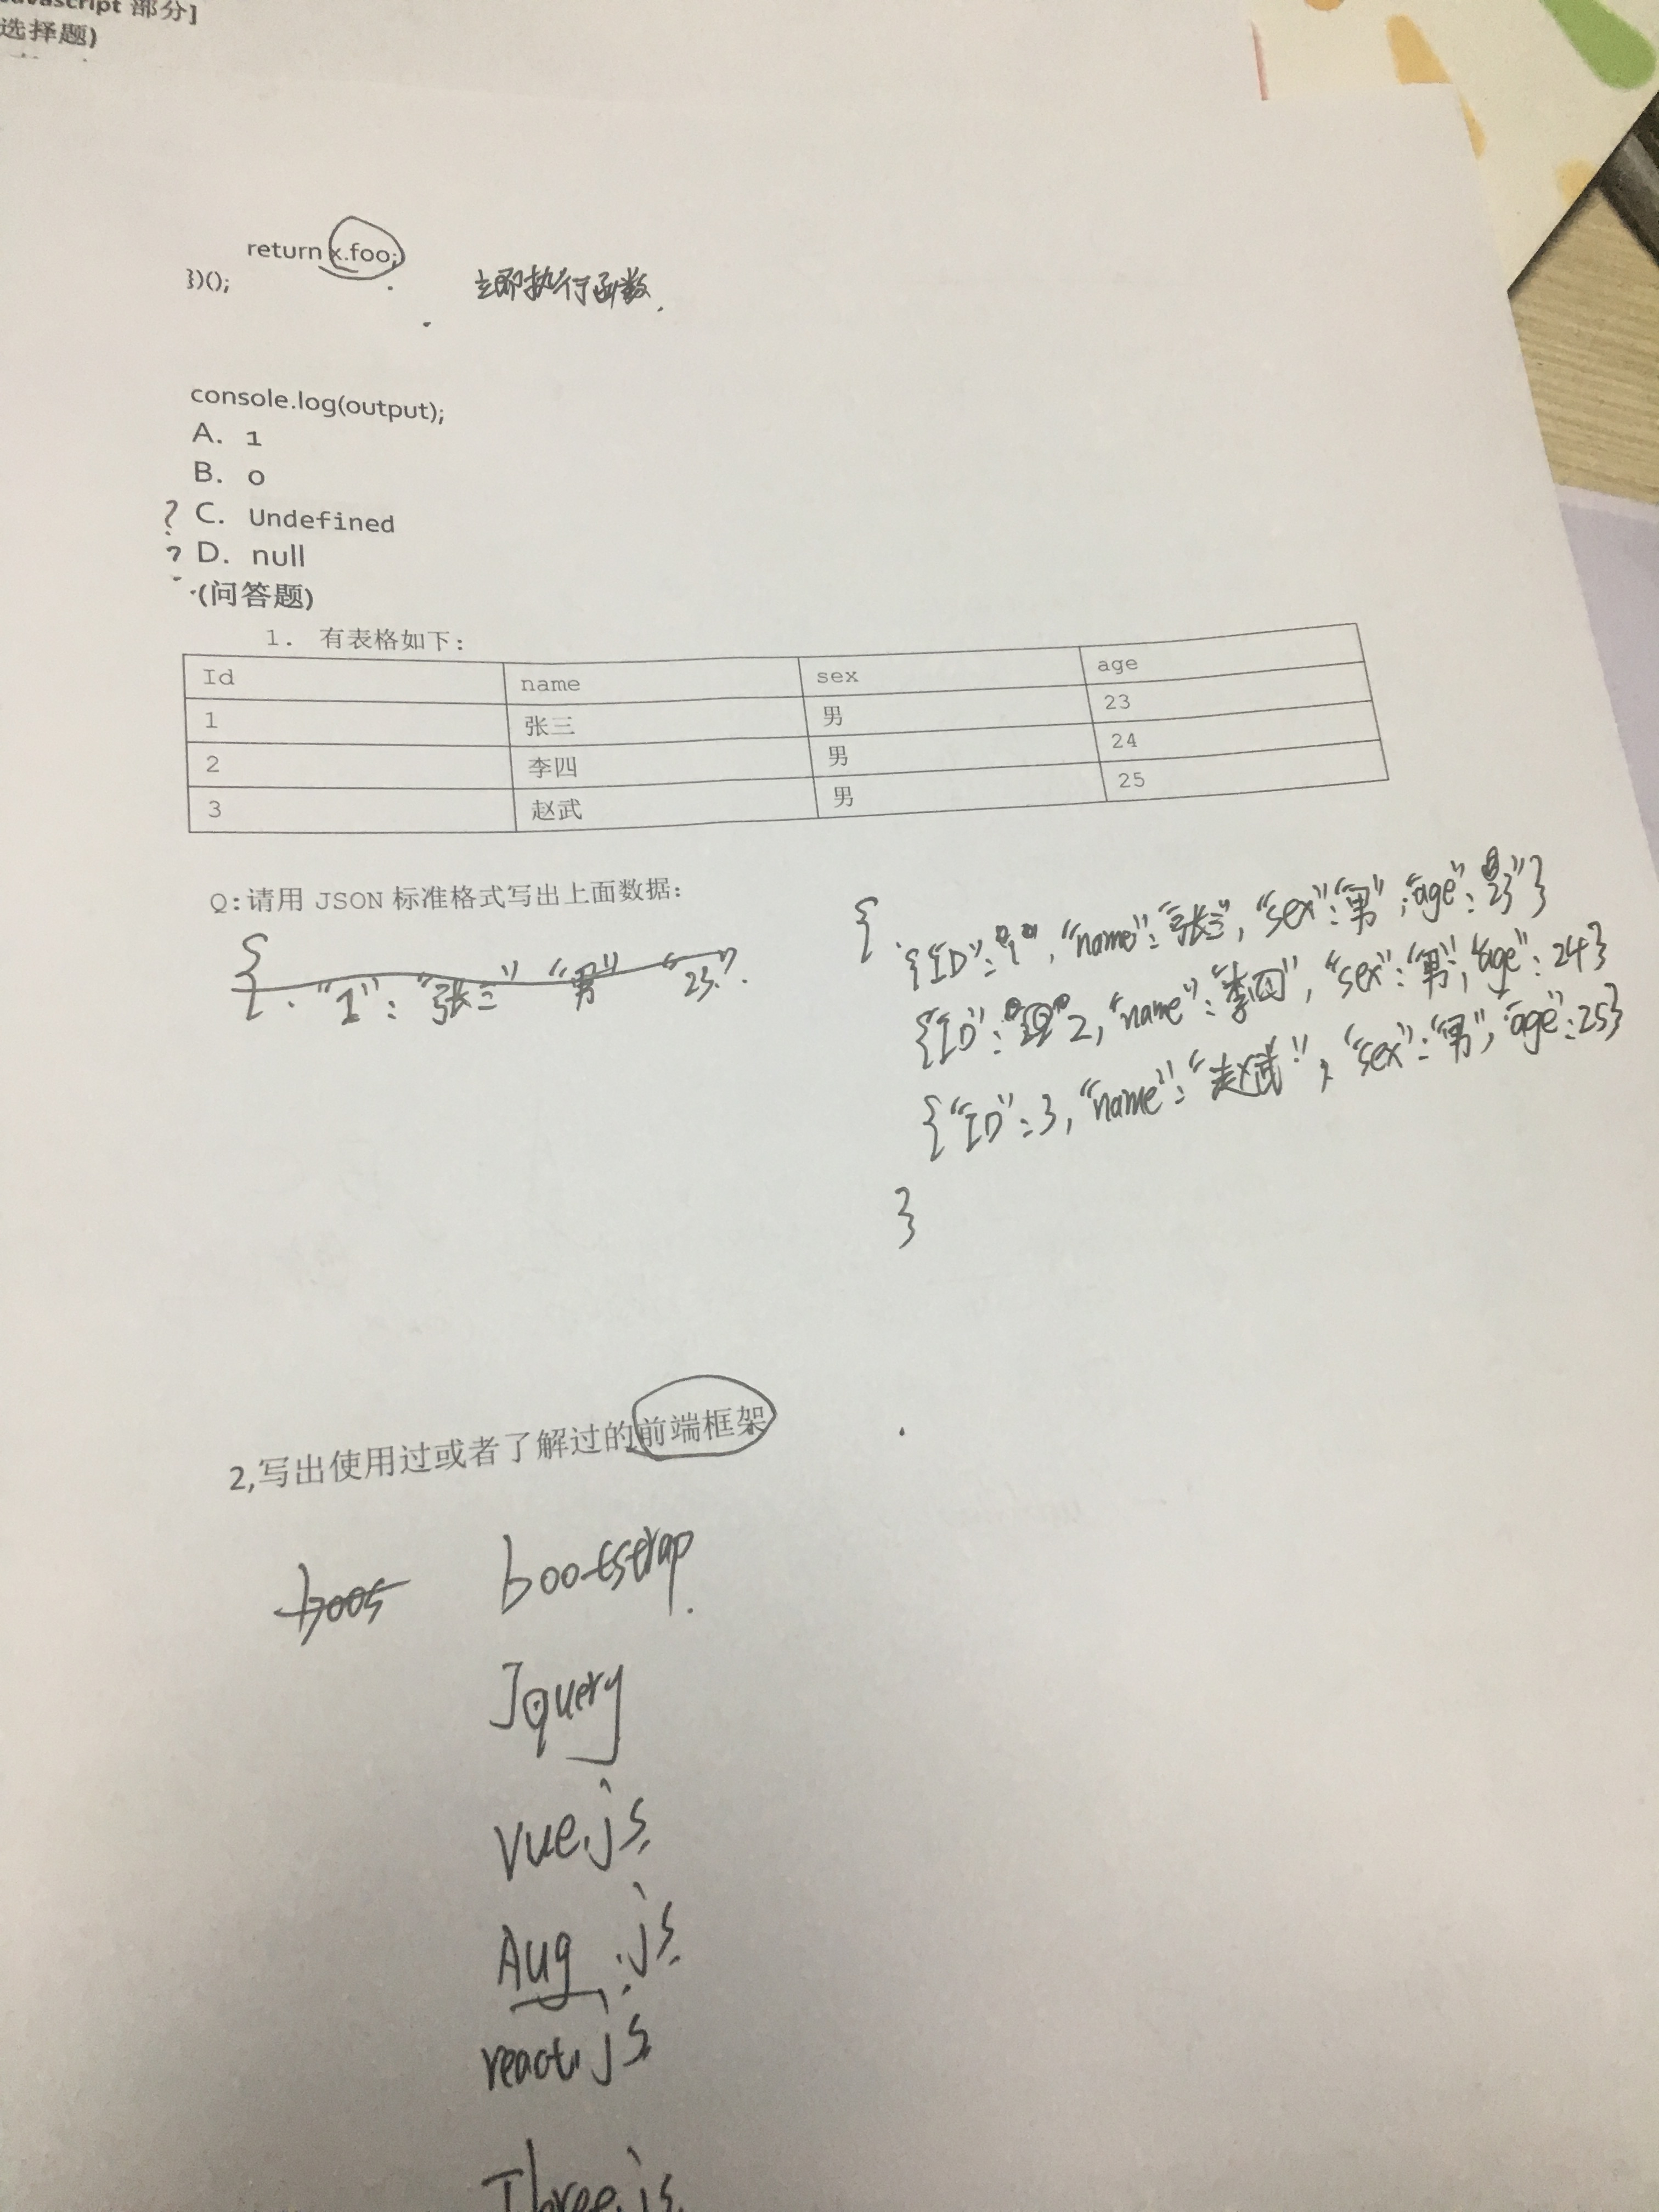 Javascript 部分]
选择题)
return x.foo;
})();
立即执行函数.
console.log(output);
A. 1
B. 0
? C. Undefined
? D. null
(问答题)
1. 有表格如下:
Id name sex age
1 张三 男 23
2 李四 男 24
3 赵武 男 25
Q:请用 JSON 标准格式写出上面数据:
{
"1": "张三" "男" "23"
{
{"ID": 1, "name": "张三", "sex": "男", "age": 23}
{"ID": 2, "name": "李四", "sex": "男", "age": 24}
{"ID": 3, "name": "赵武", "sex": "男", "age": 25}
}
2,写出使用过或者了解过的前端框架
boos bootstrap.
Jquery
vue.js
Aug .js
react.js
Three.js